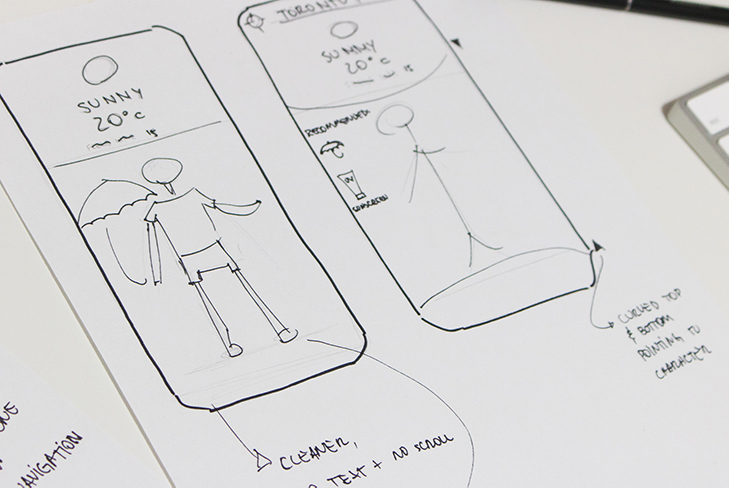 SUNNY
20°C
15
TORONTO
SUNNY
20°C
15
RECOMMENDED
SUNSCREEN
CURVED TOP
& BOTTOM
POINTING TO
CHARACTER
CLEANER,
TEXT + NO SCROLL
NAVIGATION